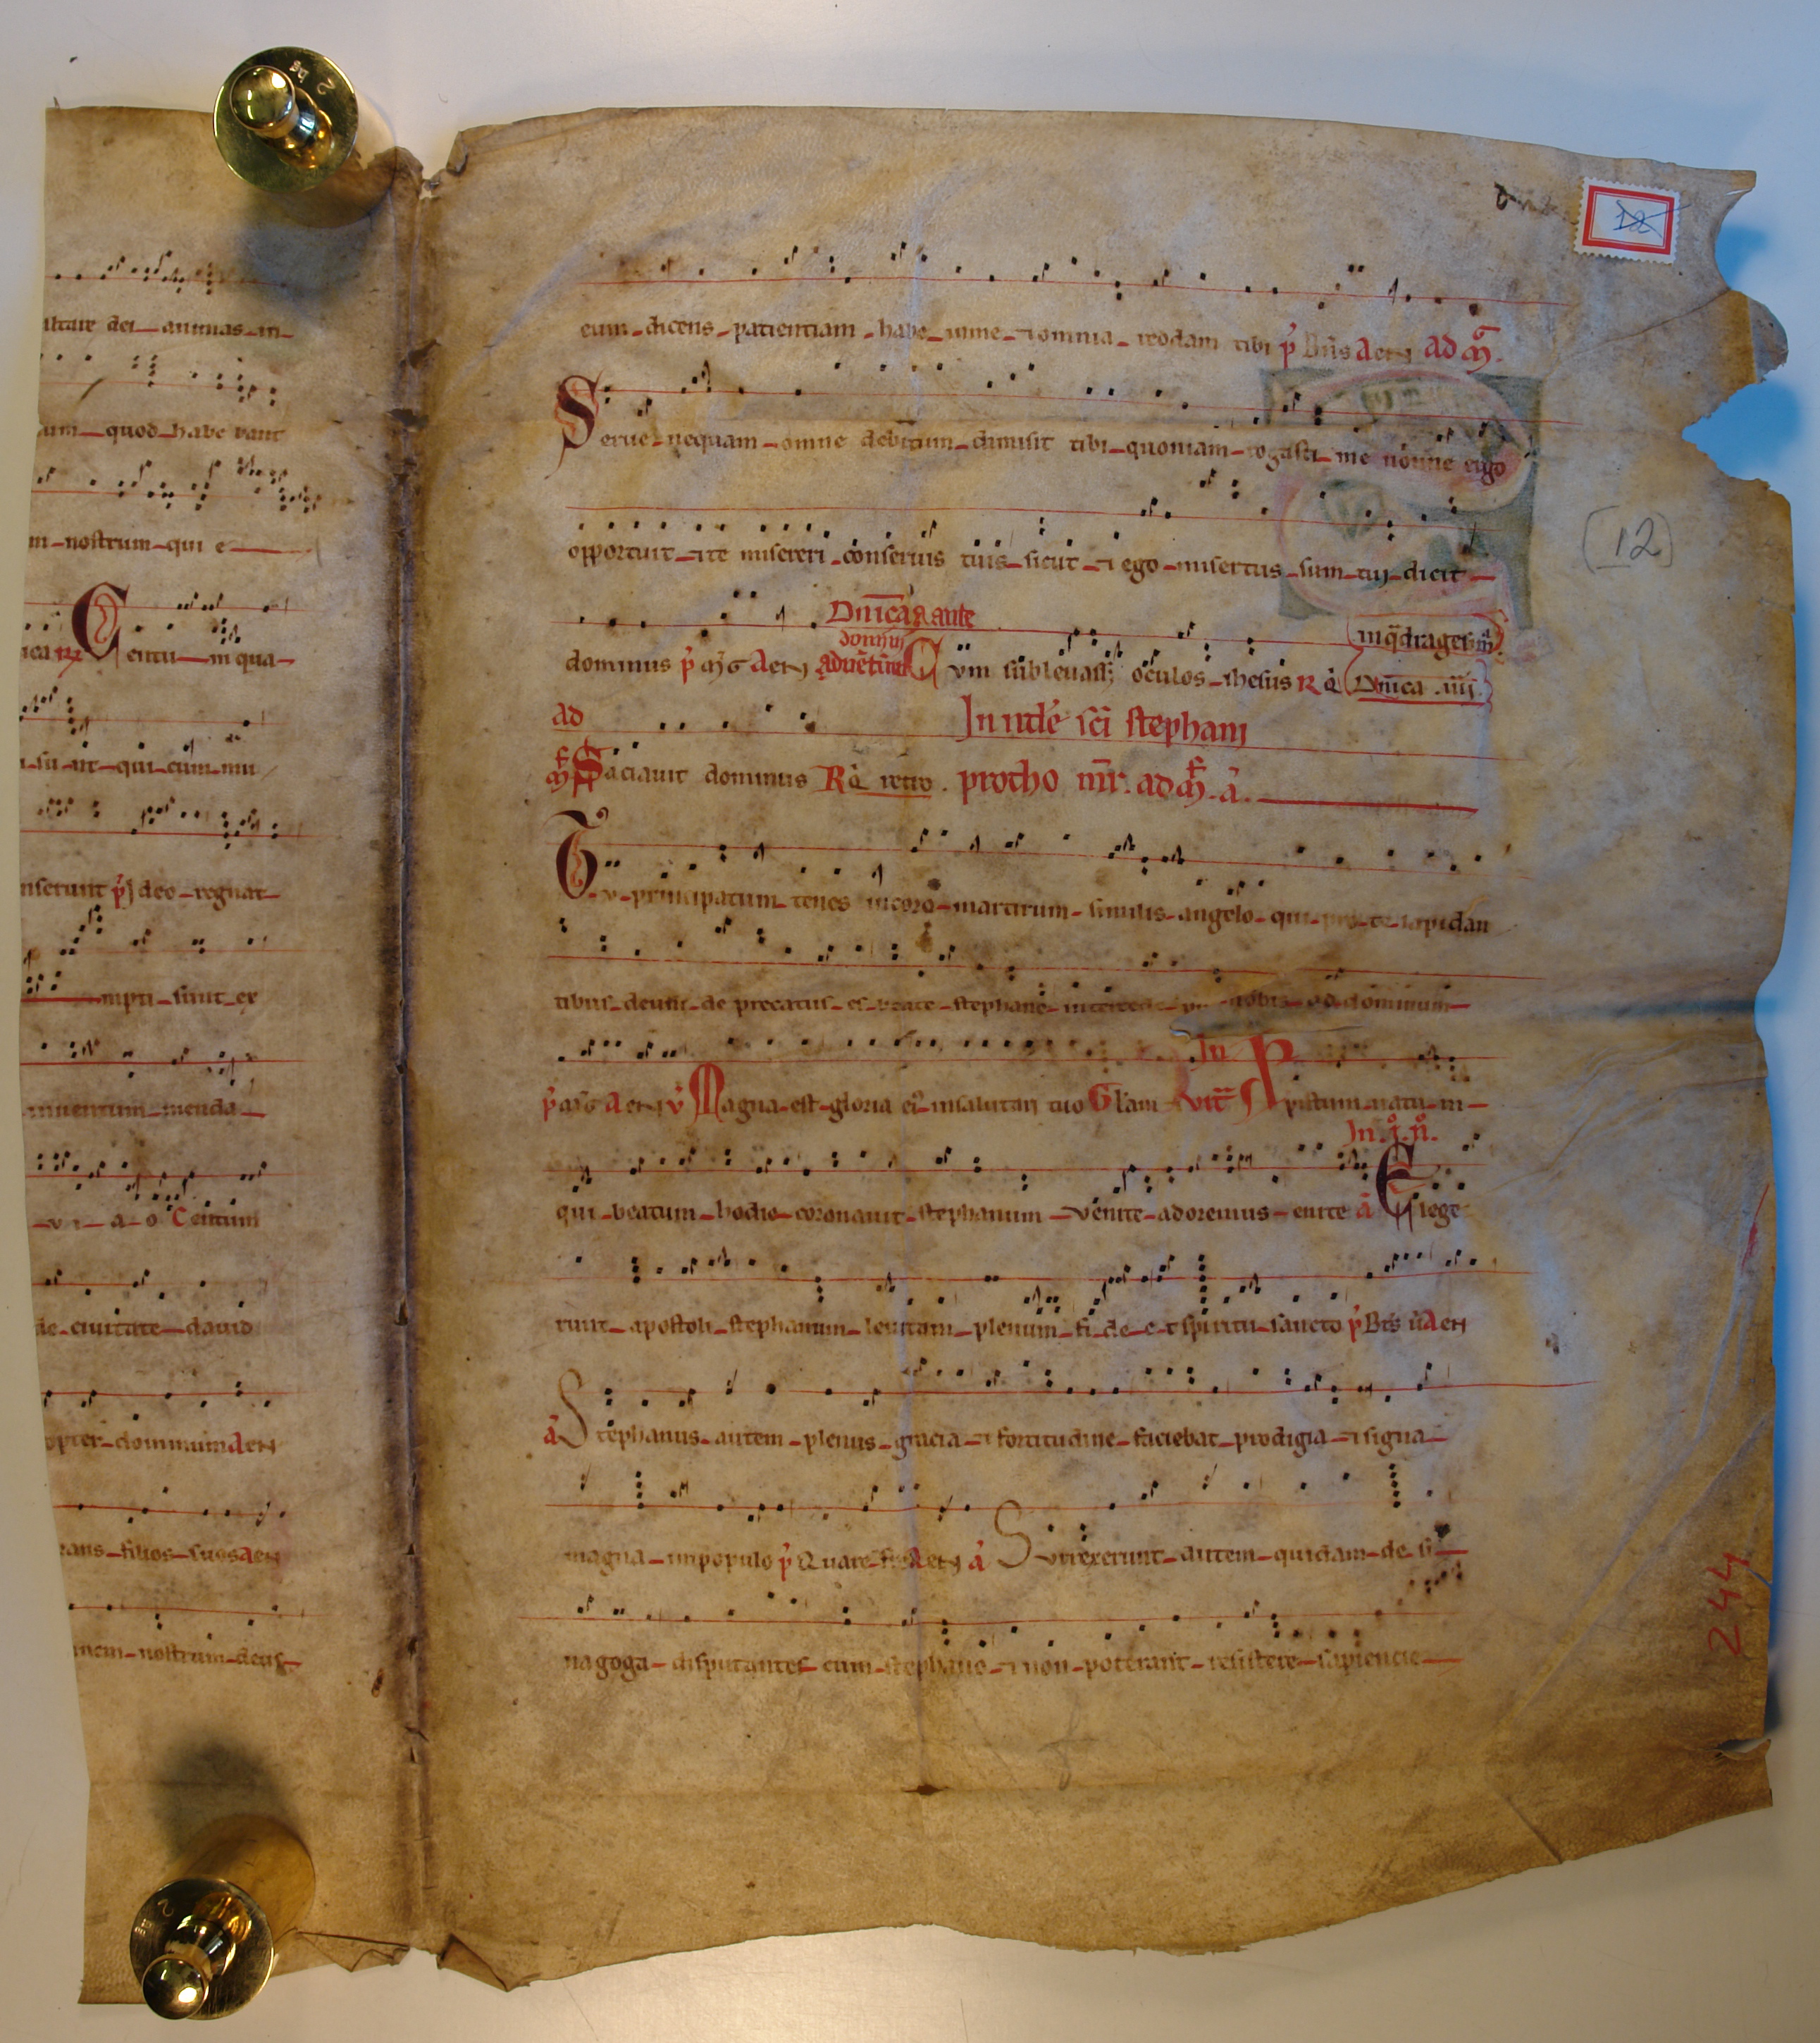 ltare dei animas in
um quod habe bant
m nostrum qui e
Centum qua
su nt qui cum mu
nserunt p̄s deo regnat
mpti sunt ex
inventum menda
Centum
de civitate david
opter dominum aeu
rans filios suos aeu
nem nostrum deus
12
eum dicens patientiam habe in me ⁊ omnia reddam tibi p̄s aeu ad
Serue nequam omne debitum dimisit tibi quoniam rogasti me nonne ergo
(12)
opportuit ⁊ te misereri conserui tuis sicut ⁊ ego misertus sum tuj dicit
Dn̄ica ante
dominus aeu Cum subleuass; oculos ihesus Rq̄ Dn̄ica .iiij.
ad In nałe sc̄i stephani
Saciauit dominus Rq̄ retro . protho mr̄. ad
Tv principatum tenes in coro martirum similis angelo qui pro te lapidan
tibus deum de precatus es beate stephane intercede nobis ad dominum
aeu v̄ Magna est gloria ei9 in salutari tuo Gl̄am
xpistum natum
In .i. n̄.
qui beatum hodie coronauit stephanum venite adoremus enite ā Elege
runt apostoli stephanum leuitam plenum fi de e t spiritu sancto p̄s aeu
ā Stephanus autem plenus gracia ⁊ fortitudine faciebat prodigia ⁊ signa
magna in populo p̄s Quare fr aeu ā Surrexerunt autem quidam de si
nagoga disputantes cum stephano ⁊ non poterant resistere sapiencie
244